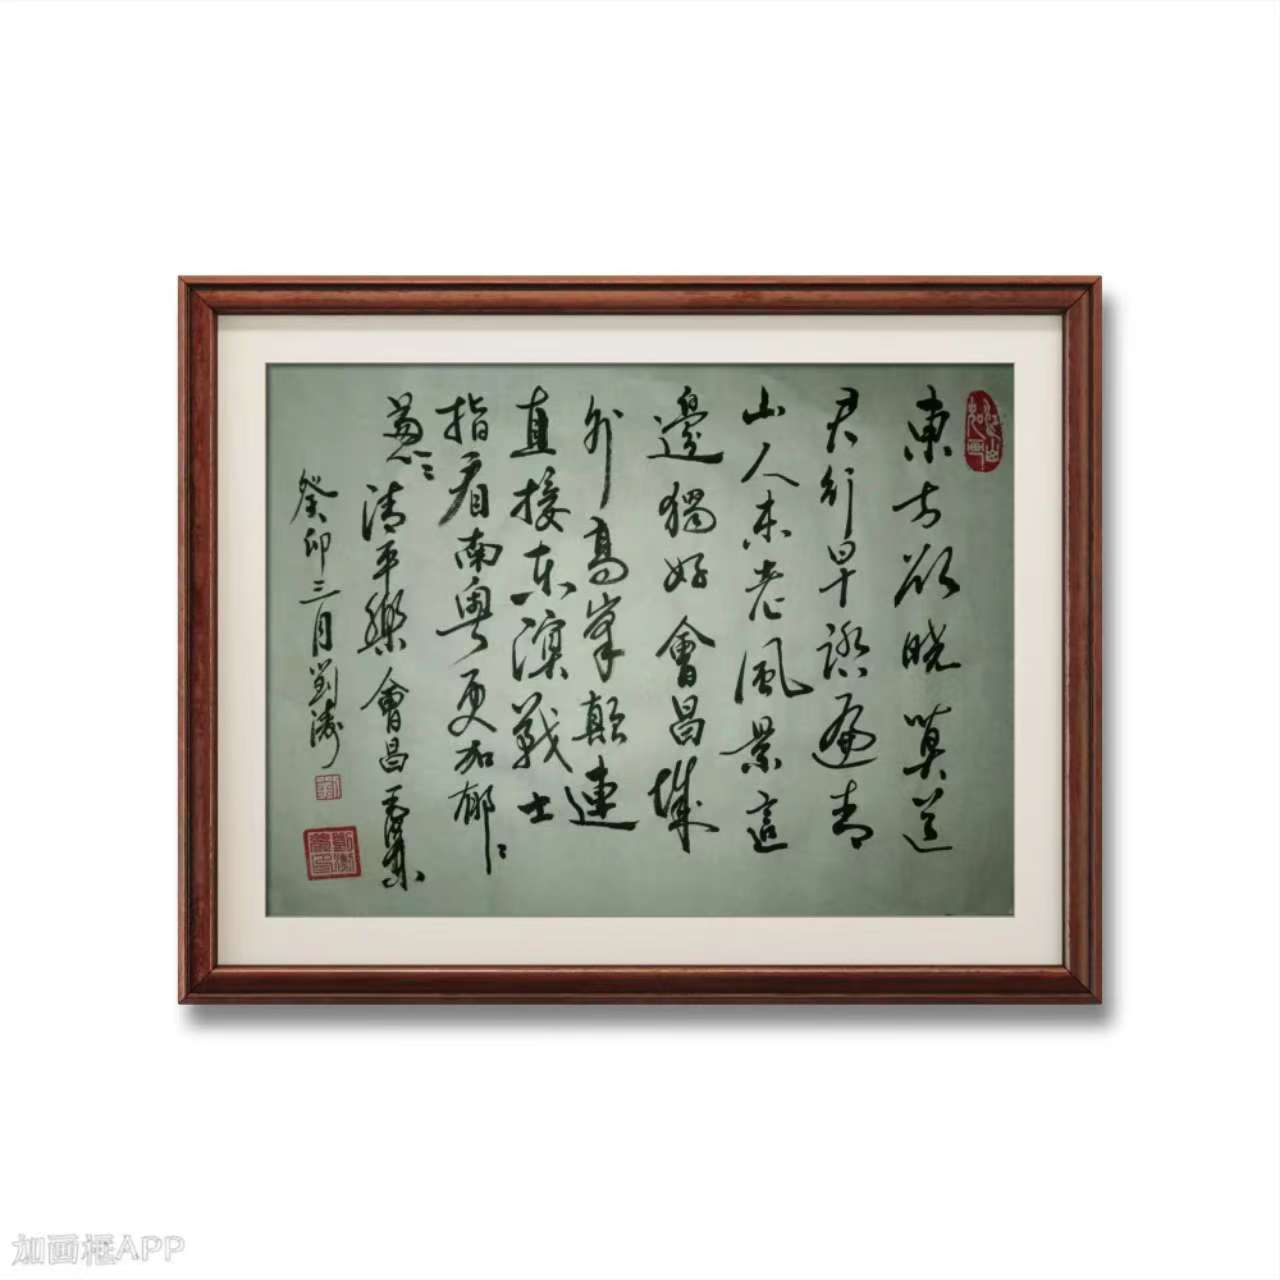 江山如画
東方欲晓莫道
君行早踏遍青
山人未老風景這
邊獨好會昌城
外高峯顛連
直接东溟戰士
指看南粤更加郁〻
葱〻清平樂會昌毛澤东
癸卯三月劉濤
加画框APP